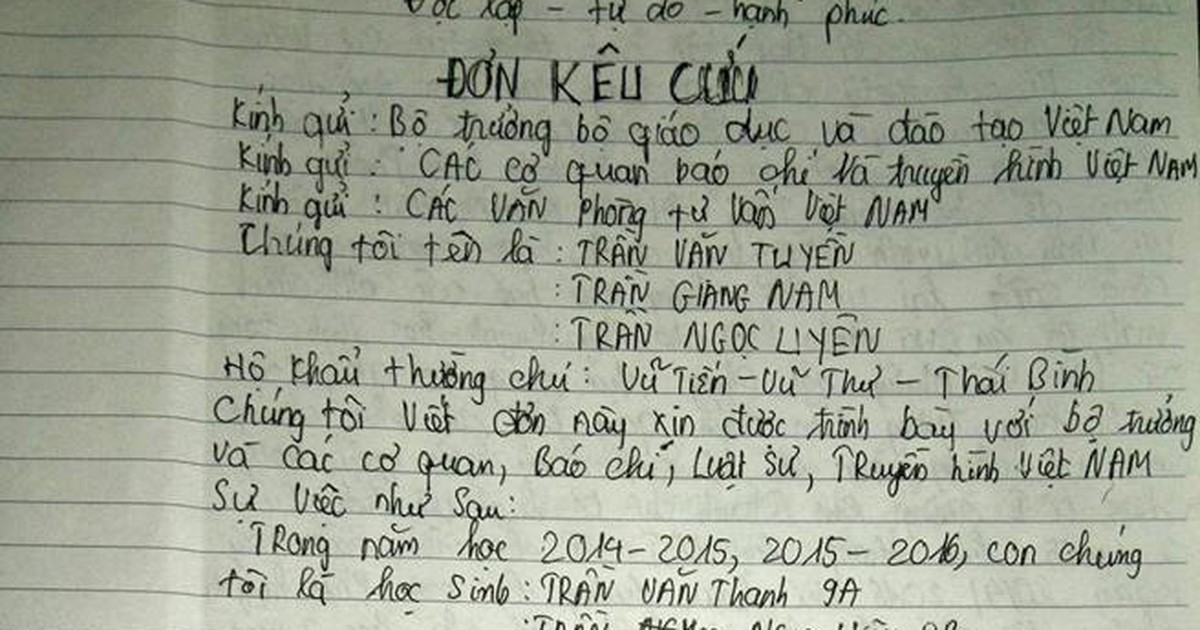 Độc lập - tự do - hạnh phúc.
ĐƠN KÊU CỨU
Kính gửi : Bộ trưởng bộ giáo dục và đào tạo Việt Nam
Kính gửi : CÁC cơ quan báo chí và truyền hình Việt NAM
Kính gửi : CÁC VĂN Phòng tư vấn Việt NAM
Chúng tôi tên là : TRẦN VĂN TUYÊN
: TRẦN GIANG NAM
: TRẦN NGỌC UYÊN
Hộ khẩu thường chú : Vũ Tiến - Vũ Thư - Thái Bình
Chúng tôi Viết đơn này xin được trình bày với bộ trưởng
và các cơ quan, Báo chí, Luật sư, TRuyền hình Việt NAM
Sự Việc như Sau :
TRong năm học 2014-2015, 2015-2016, con chúng
tôi là học Sinh : TRẦN VĂN Thanh 9A
: TRẦN